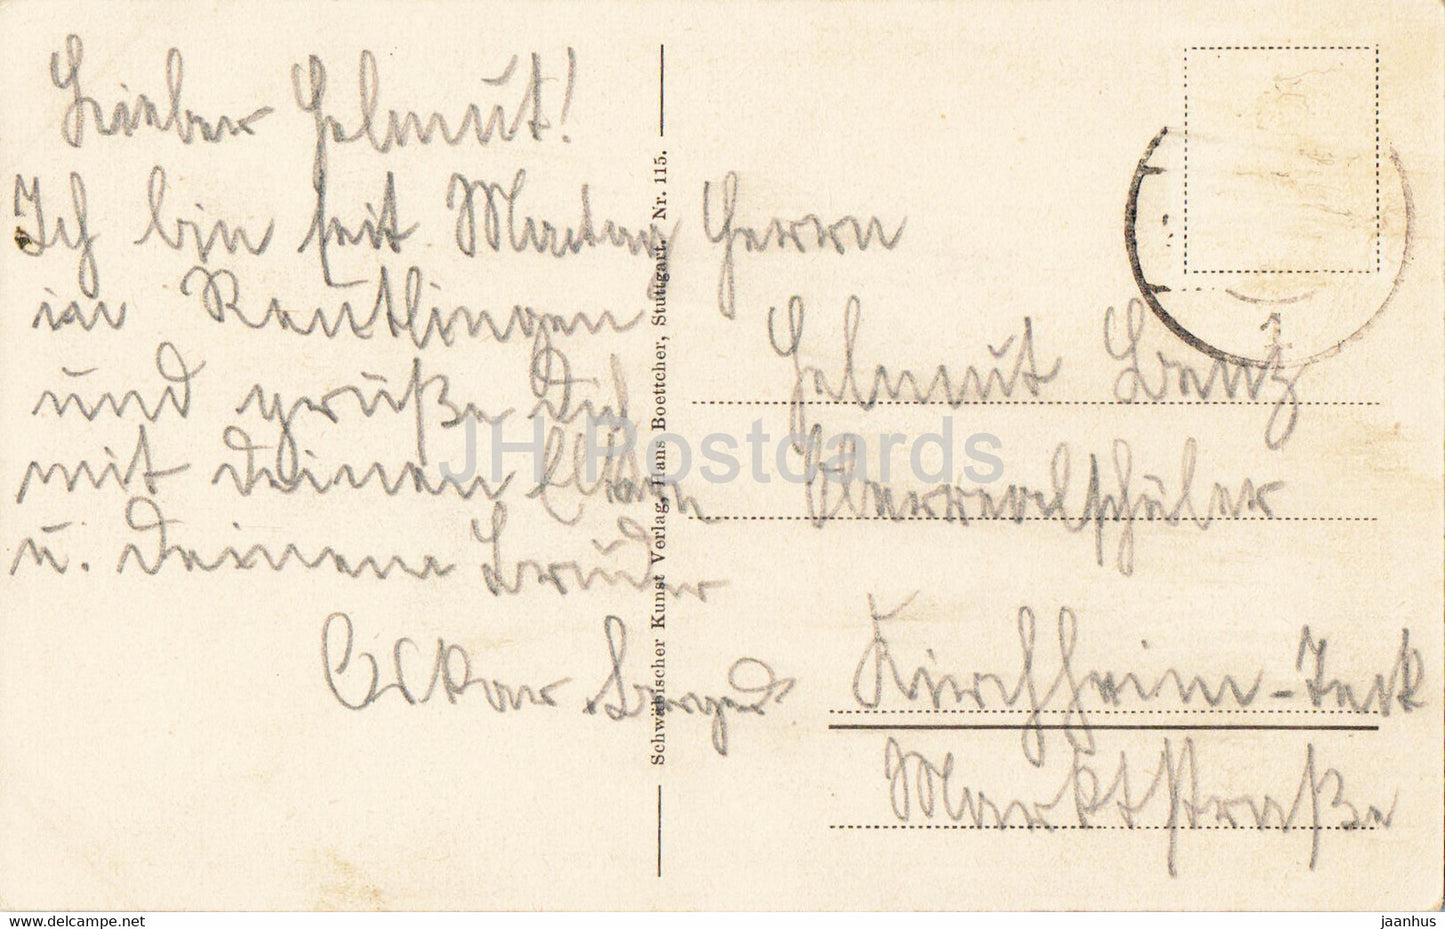 Lieber Helmut!
Ich bin seit Montag
in Reutlingen
und grüße Dich
mit Deinen Eltern
u. Deinem Bruder
Oskar
Schwäbischer Kunst Verlag, Hans Boettcher, Stuttgart. Nr. 115.
Herrn
Helmut Benz
Oberrealschüler
Kirchheim-Teck
Marktstraße
1
JH Postcards
www.delcampe.net
jaanhus